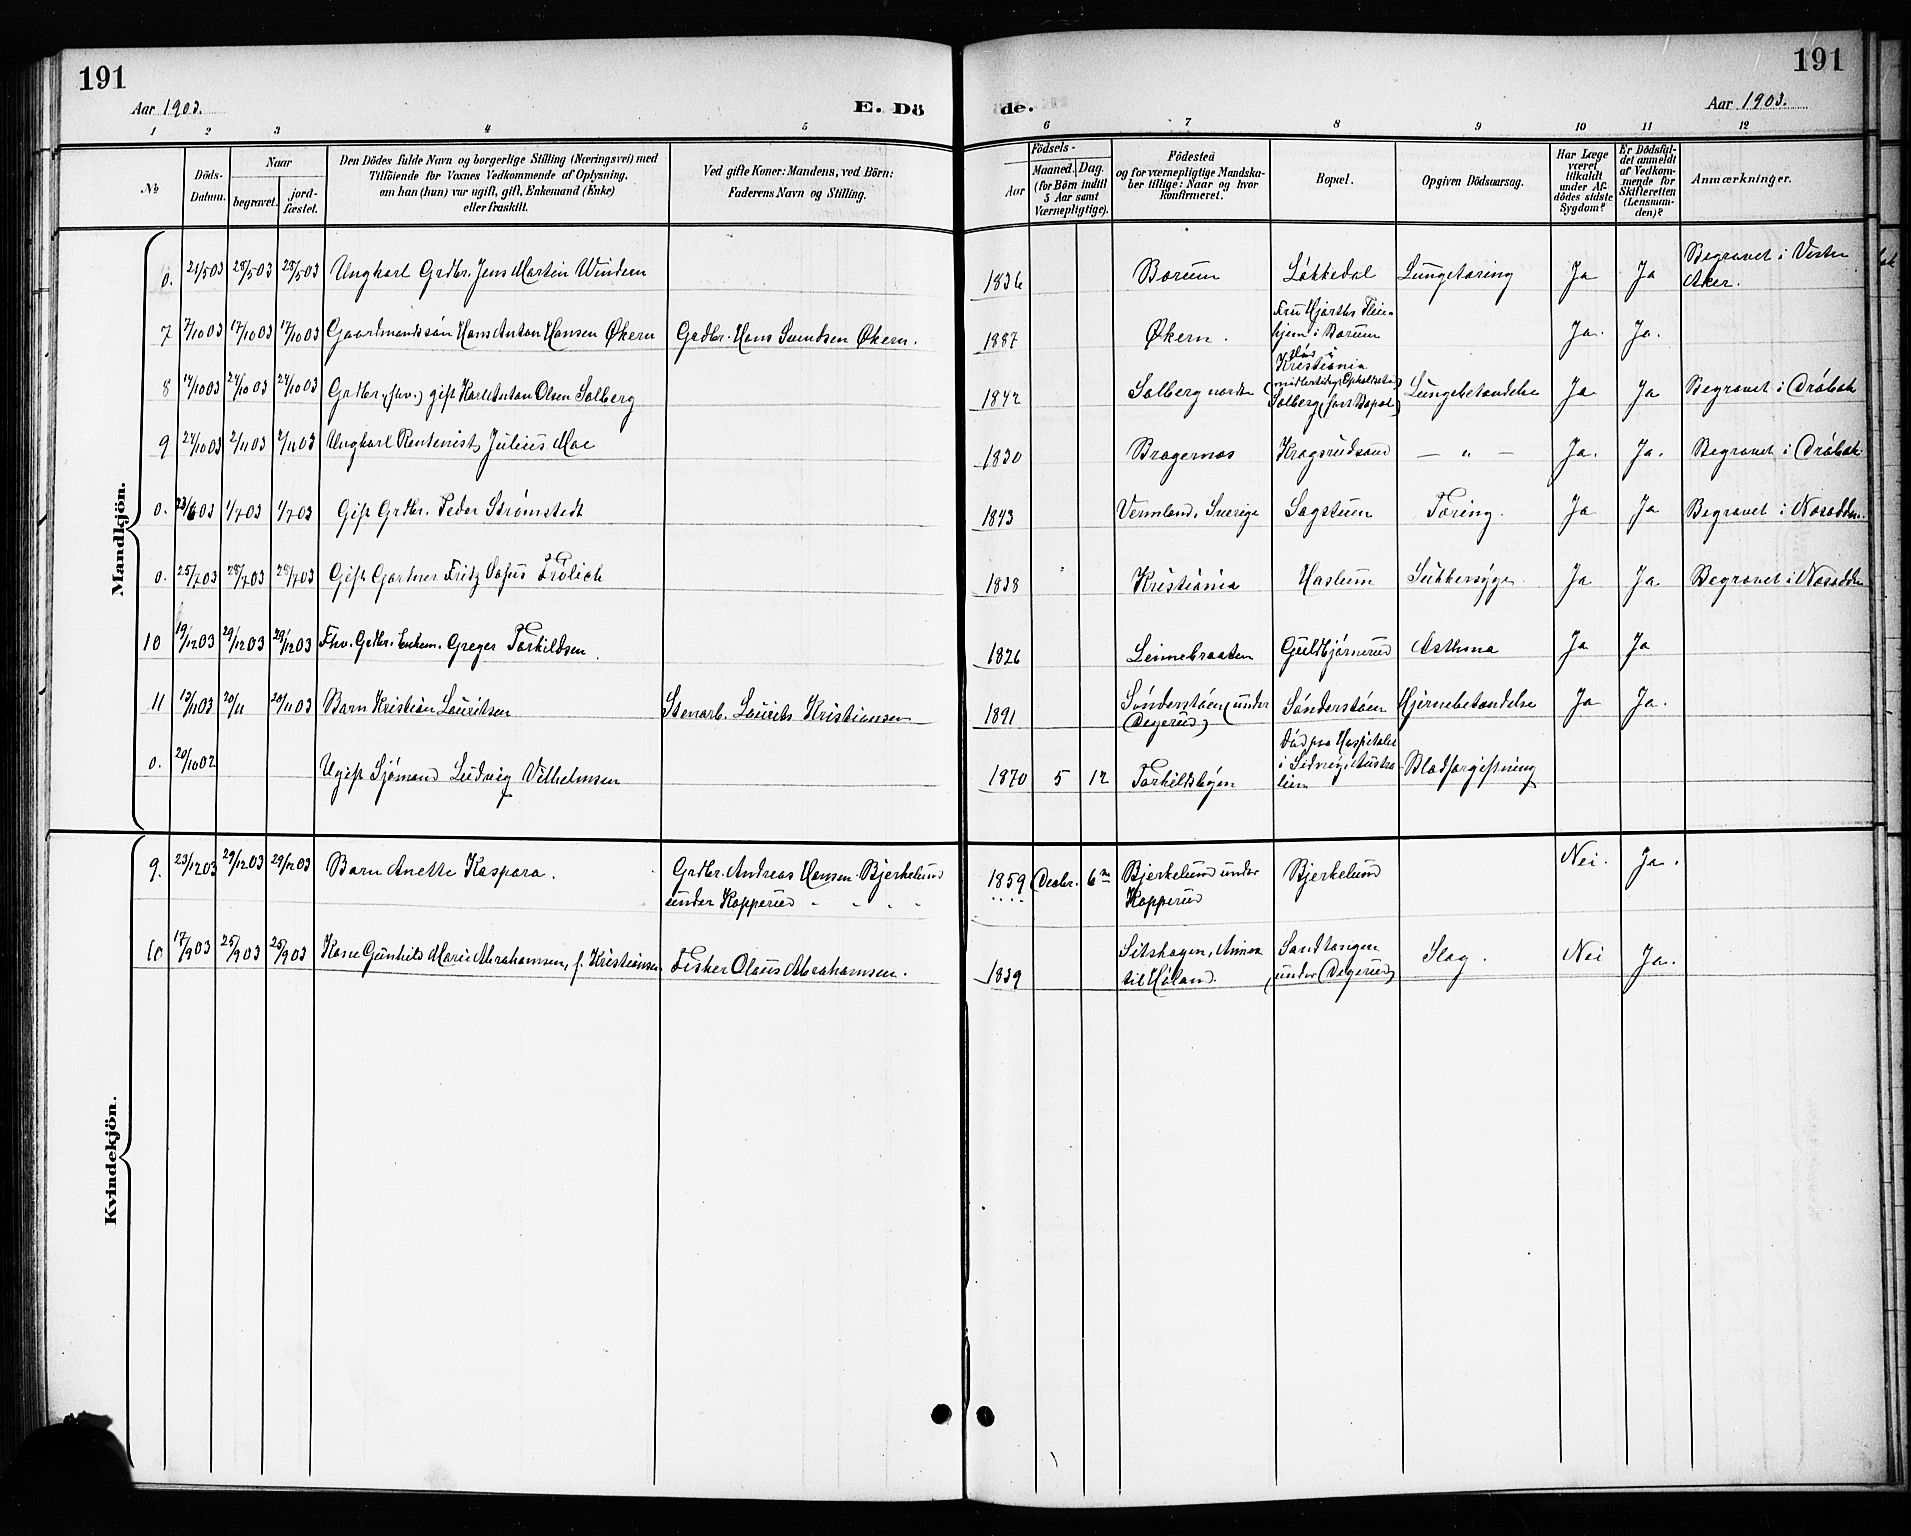 191
191
Aar 1903.
E. Dö
de.
Aar 1903.
1 2 3 4 5 6 7 8 9 10 11 12
No
Döds-
Datum.
Naar
begravet.
jord-
fæstet.
Den Dödes fulde Navn og borgerlige Stilling (Næringsvei) med
Tilföiende for Voxnes Vedkommende af Oplysning,
om han (hun) var ugift, gift, Enkemand (Enke)
eller fraskilt.
Ved gifte Koner: Mandens, ved Börn:
Faderens Navn og Stilling.
Födsels-
Aar
Maaned. Dag.
(for Börn indtil
5 Aar samt
Værnepligtige).
Födested
og for værnepligtige Mandska-
ber tillige: Naar og hvor
konfirmeret.
Bopæl.
Opgiven Dödsaarsag.
Har Læge
været
tilkaldt
under Af-
dödes sidste
Sygdom?
Er Dödsfal-
det anmeldt
af Vedkom-
mende for
Skifteretten
(Lensman-
den)?
Anmærkninger.
Mandkjön.
0. 21/5 03 28/5 03 28/5 03 Ungkarl Grdbr. Jens Martin Windem 1836 Bærum Løkkedal Lungetæring Ja Ja Begravet i Vestre
Aker.
7 7/10 03 17/10 03 17/10 03 Gaardmandssøn Hans Anton Hansen Økern Grdbr. Hans Hansen Økern. 1887 Økern. Fru Hjorths Pleie-
hjem i Bærum Ja. Ja.
8 14/10 03 24/10 03 24/10 03 Grdbr. (fhv.) gift Karl Anton Olsen Solberg 1842 Solberg nordre Død i
Kristiania
(midlertidigt Opholdssted)
Solberg (fast Bopæl) Lungebetændelse Ja Ja Begravet i Drøbak
9 24/10 03 2/11 03 2/11 03 Ungkarl Rentenist Julius Moe 1830 Bragernæs Kragsrudsand — „ — Ja. Ja. Begravet i Drøbak.
0. 23/6 03 1/7 03 1/7 03 Gift Grdbr. Peder Strømstedt 1843 Vermland, Sverige Sagstuen Tæring. Ja Ja Begravet i Næsodden.
0. 25/7 03 28/7 03 28/7 03 Gift Gartner Fritz Sofus Frölich 1838 Kristiania Haslum Sukkersyge. Ja Ja. Begravet i Næsodden
10 19/12 03 29/12 03 29/12 03 Fhv. Grdbr. Enkem. Greger Torkildsen 1826 Linnebraaten Guldbjørnerud Asthma Ja Ja
11 13/11 03 20/11 20/11 03 Barn Kristian Lauritsen Stenarb. Laurits Kristiansen 1891 Sønderstøen (under
Degerud) Sønderstøen Hjernebetændelse Ja Ja.
0. 20/10 02 Ugift Sjømand Ludvig Vilhelmsen 1870 5 12 Torkildsbyen Død paa Hospitalet
i Sidney, Austra-
lien Blodforgiftning
Kvindekjön.
9. 23/12 03 29/12 03 29/12 03 Barn Anette Kaspara. Grdbr. Andreas Hansen Bjerkelund
under Kopperud 1859 Decbr. 6te Bjerkelund under
Kopperud Bjerkelund Nei. Ja.
10 17/9 03 25/9 03 25/9 03 Kone Gunhild Marie Abrahamsen, f. Kristiansen Fisker Olaus Abrahamsen. 1839 Sitskogen, Annex
til Høland. Sandtangen
(under Degerud) Slag. Nei Ja.